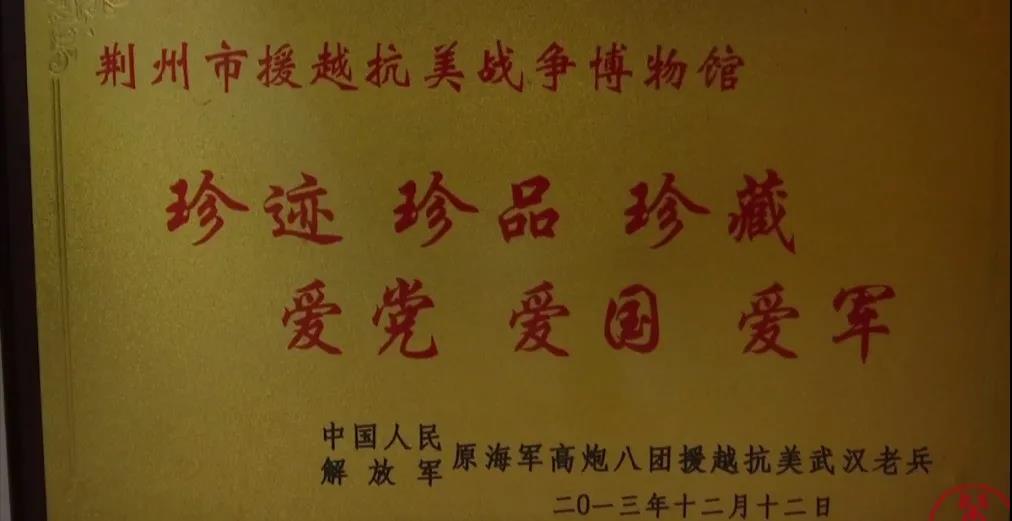 荆州市援越抗美战争博物馆
珍迹 珍品 珍藏
爱党 爱国 爱军
中国人民
解放军
原海军高炮八团援越抗美武汉老兵
二0一三年十二月十二日